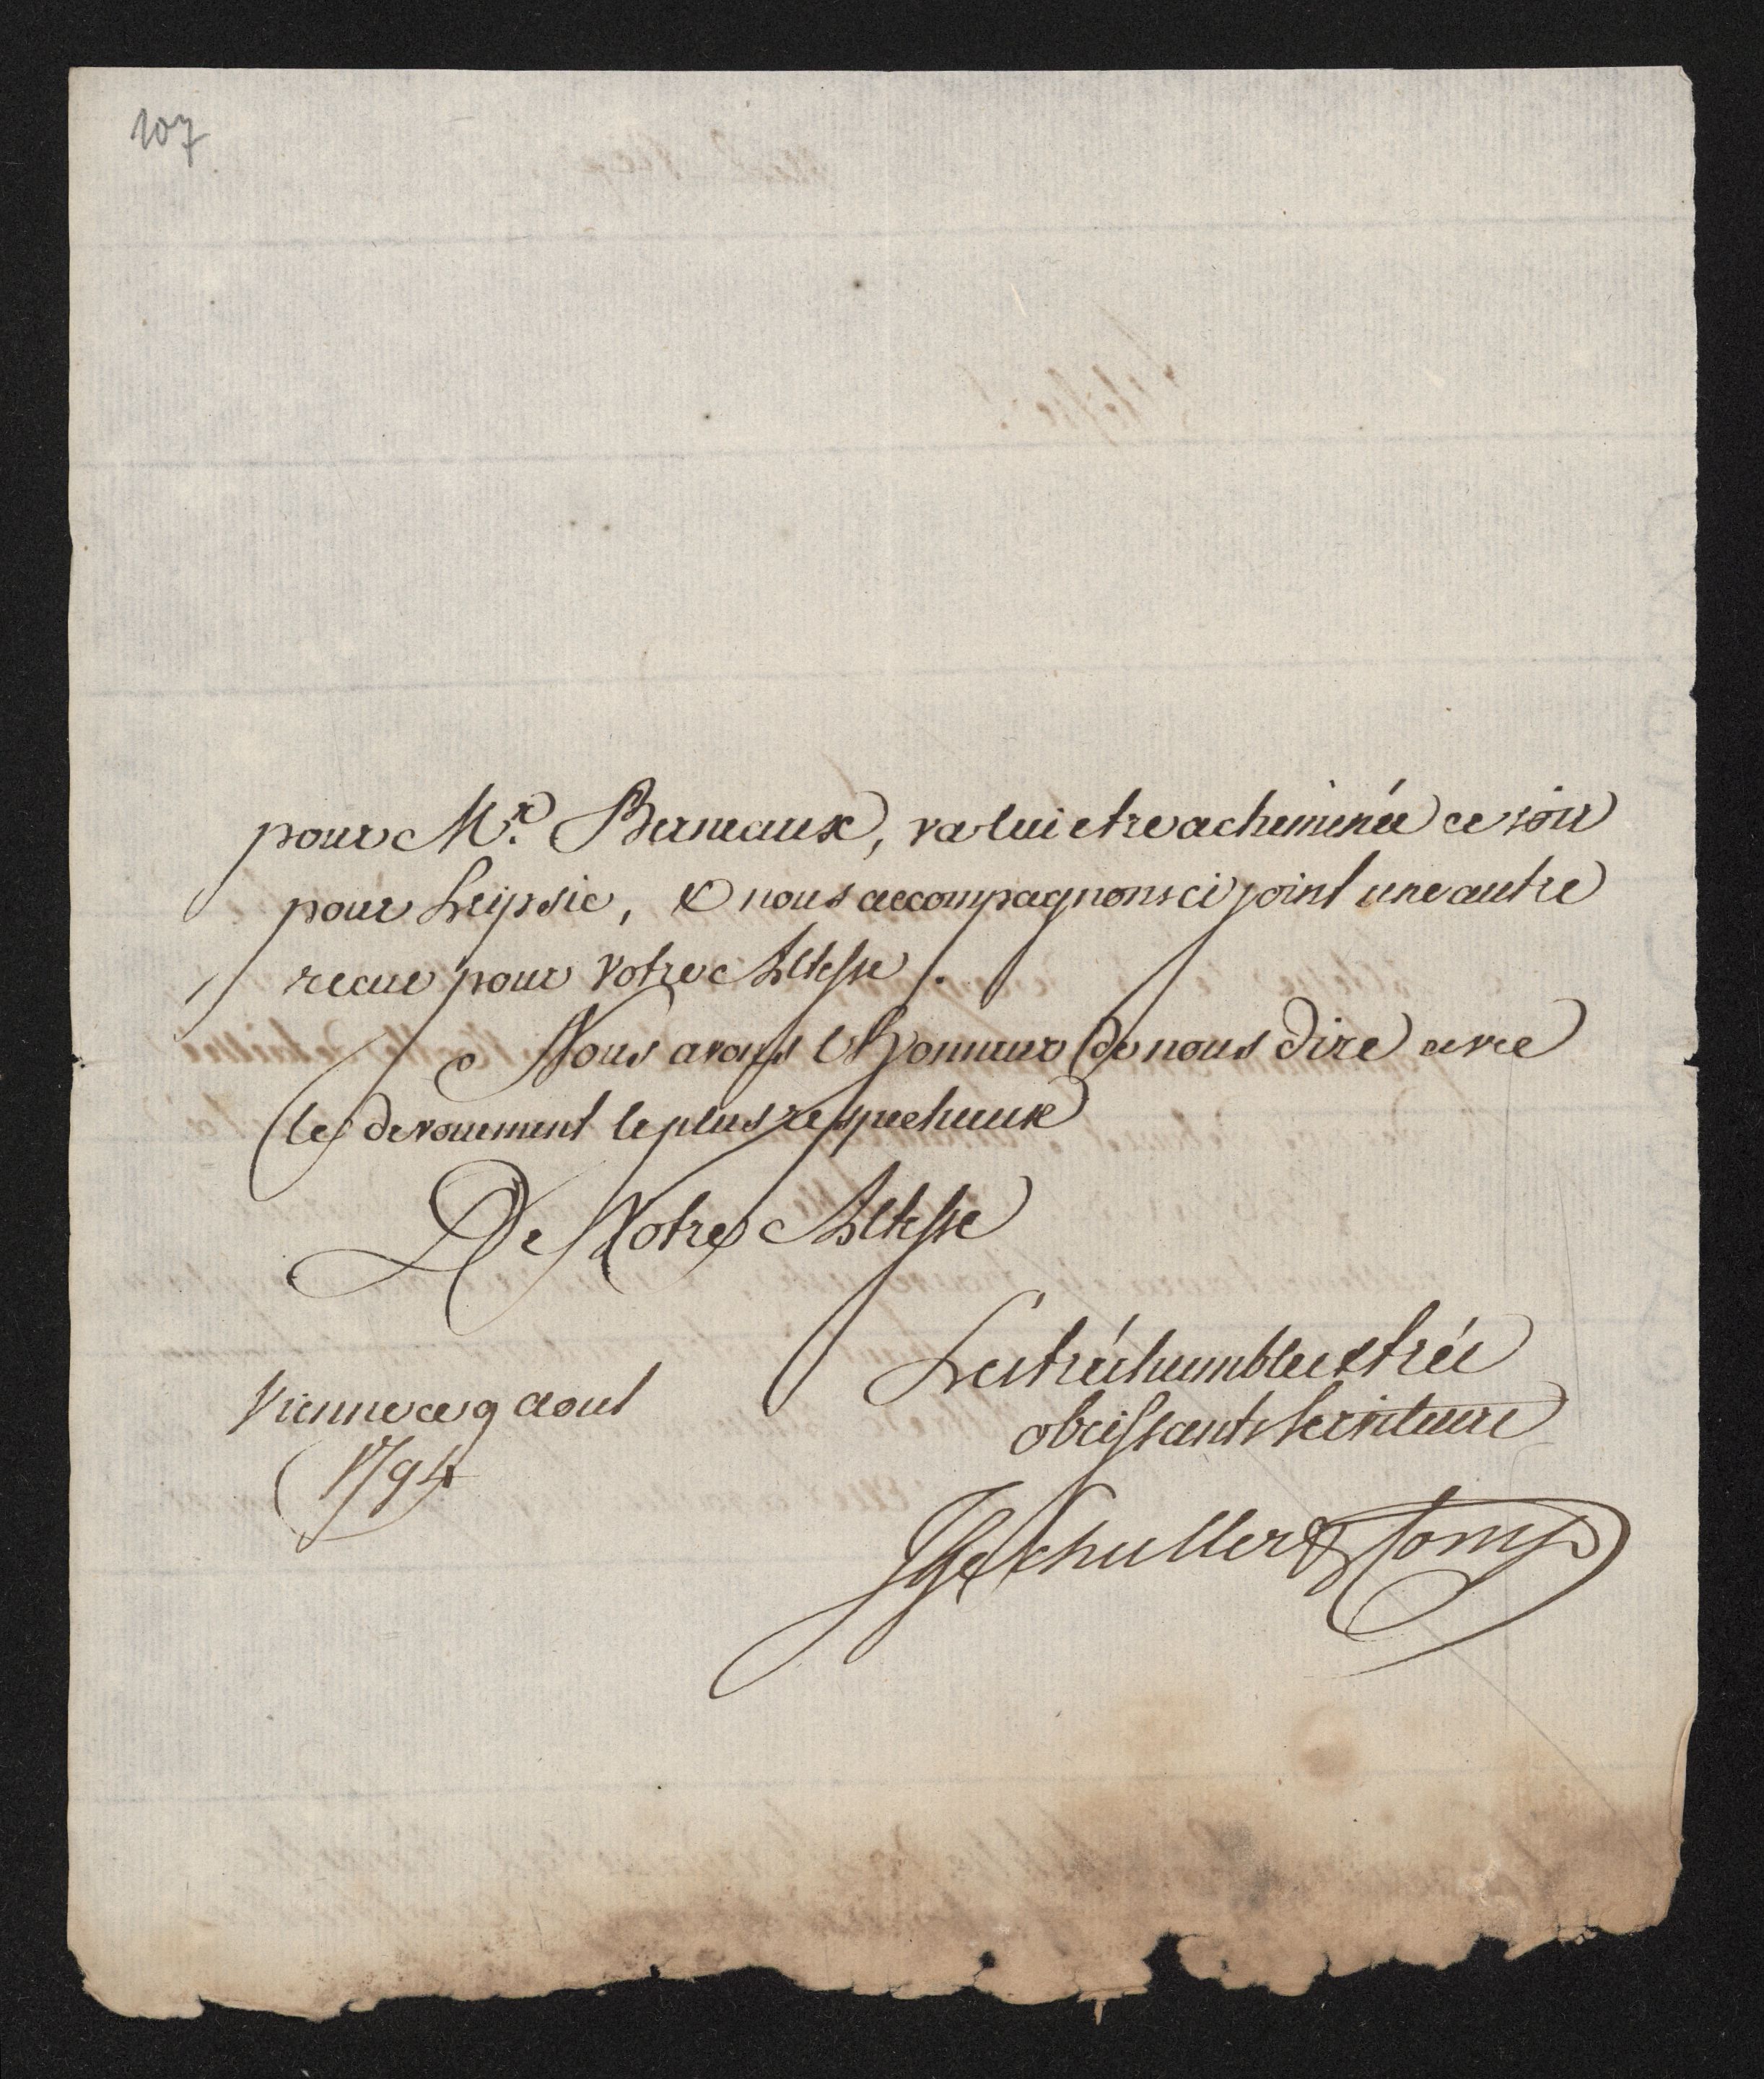 107
pour Mr. Berneaux, va lui etre acheminée ce soir
pour Leipsic, & nous accompagnons ci joint une autre
recue pour Votre Altesse.
Nous avons l'honneur de nous dire avec
le devouement le plus respectueux
De Votre Altesse
Les trés humbles & trés
obeissants Serviteurs
Vienne ce 9 aout
1794
Schuller & Comp